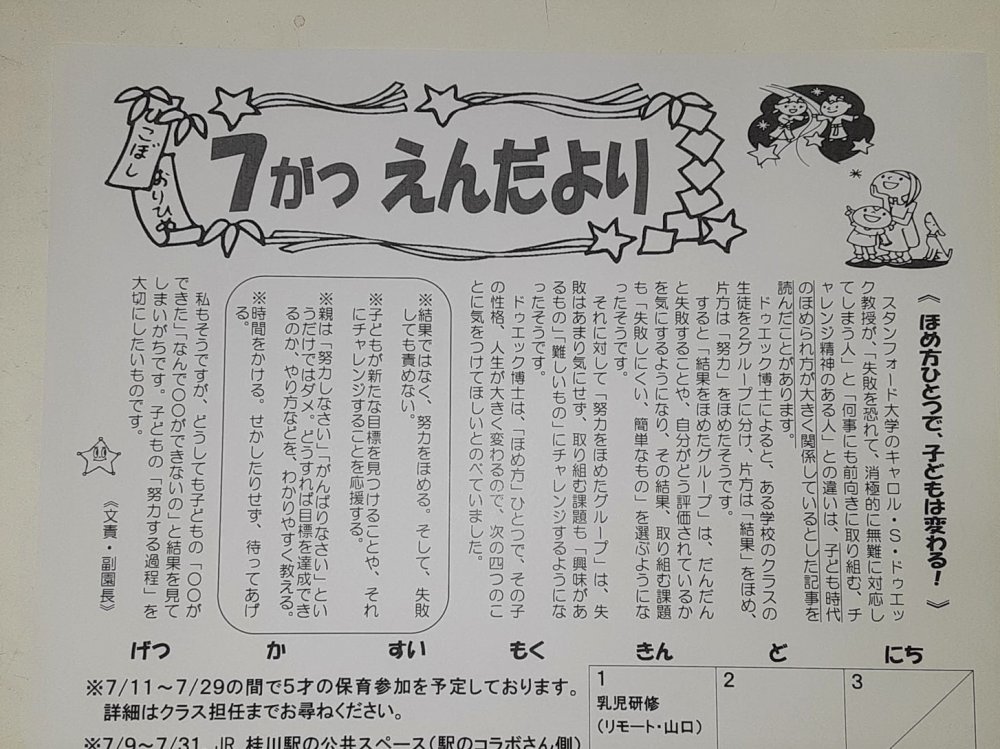 ひこぼし
おりひめ
7がつ えんだより
《 ほめ方ひとつで、子どもは変わる！ 》
スタンフォード大学のキャロル・S・ドゥエッ
ク教授が、「失敗を恐れて、消極的に無難に対応し
てしまう人」と「何事にも前向きに取り組む、チ
ャレンジ精神のある人」との違いは、子ども時代
のほめられ方が大きく関係しているとした記事を
読んだことがあります。
ドゥエック博士によると、ある学校のクラスの
生徒を２グループに分け、片方は「結果」をほめ、
片方は「努力」をほめたそうです。
すると「結果をほめたグループ」は、だんだん
と失敗することや、自分がどう評価されているか
を気にするようになり、その結果、取り組む課題
も「失敗しにくい、簡単なもの」を選ぶようにな
ったそうです。
それに対して「努力をほめたグループ」は、失
敗はあまり気にせず、取り組む課題も「興味があ
るもの」「難しいもの」にチャレンジするようにな
ったそうです。
ドゥエック博士は、「ほめ方」ひとつで、その子
の性格、人生が大きく変わるので、次の四つのこ
とに気をつけてほしいとのべていました。
※結果ではなく、努力をほめる。そして、失敗
しても責めない。
※子どもが新たな目標を見つけることや、それ
にチャレンジすることを応援する。
※親は「努力しなさい」「がんばりなさい」とい
うだけではダメ。どうすれば目標を達成でき
るのか、やり方などを、わかりやすく教える。
※時間をかける。せかしたりせず、待ってあげ
る。
私もそうですが、どうしても子どもの「〇〇が
できた」「なんで〇〇ができないの」と結果を見て
しまいがちです。子どもの「努力する過程」を
大切にしたいものです。
《文責・副園長》
げつ か すい もく きん ど にち
※7/11～7/29の間で5才の保育参加を予定しております。
詳細はクラス担任までお尋ねください。
※7/9～7/31 JR 桂川駅の公共スペース（駅のコラボさん側）
1
乳児研修
(リモート・山口)
2
3